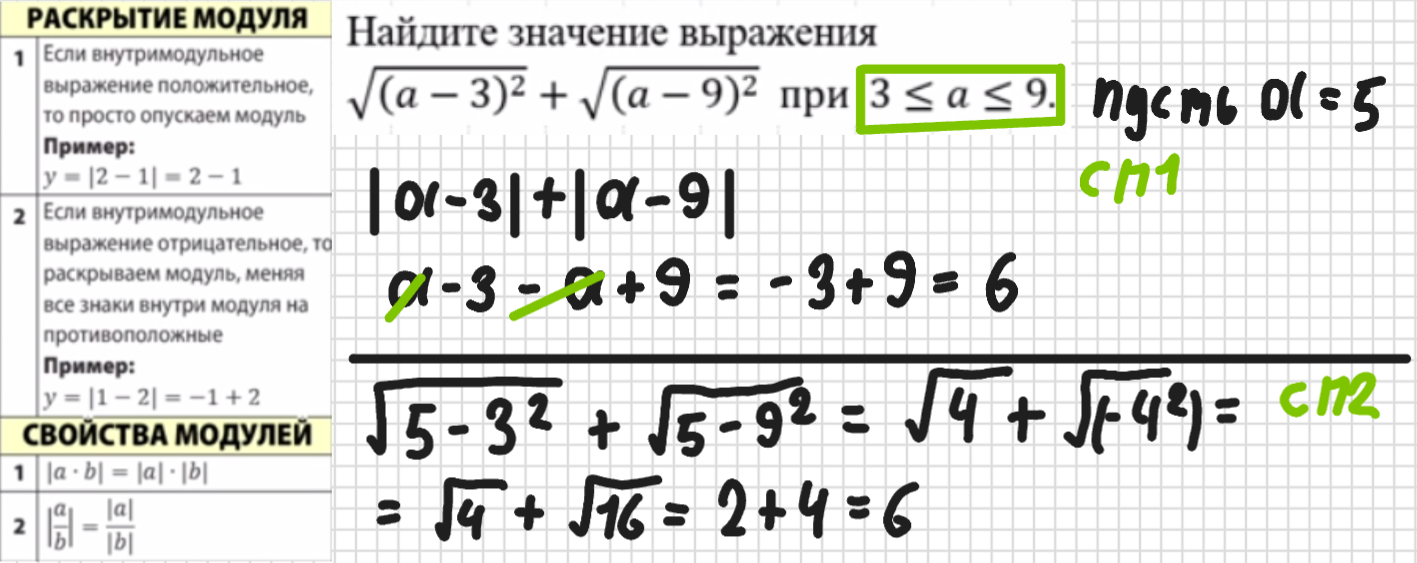 РАСКРЫТИЕ МОДУЛЯ
1 Если внутримодульное
выражение положительное,
то просто опускаем модуль
Пример:
y = |2 − 1| = 2 − 1
2 Если внутримодульное
выражение отрицательное, то
раскрываем модуль, меняя
все знаки внутри модуля на
противоположные
Пример:
y = |1 − 2| = −1 + 2
СВОЙСТВА МОДУЛЕЙ
1 |a · b| = |a| · |b|
2 |a/b| = |a|/|b|
Найдите значение выражения
√(a − 3)² + √(a − 9)² при 3 ≤ a ≤ 9.
пусть a = 5
сп1
|a - 3| + |a - 9|
a - 3 - a + 9 = - 3 + 9 = 6
√5 - 3² + √5 - 9² = √4 + √(-4²) =
сп2
= √4 + √16 = 2 + 4 = 6